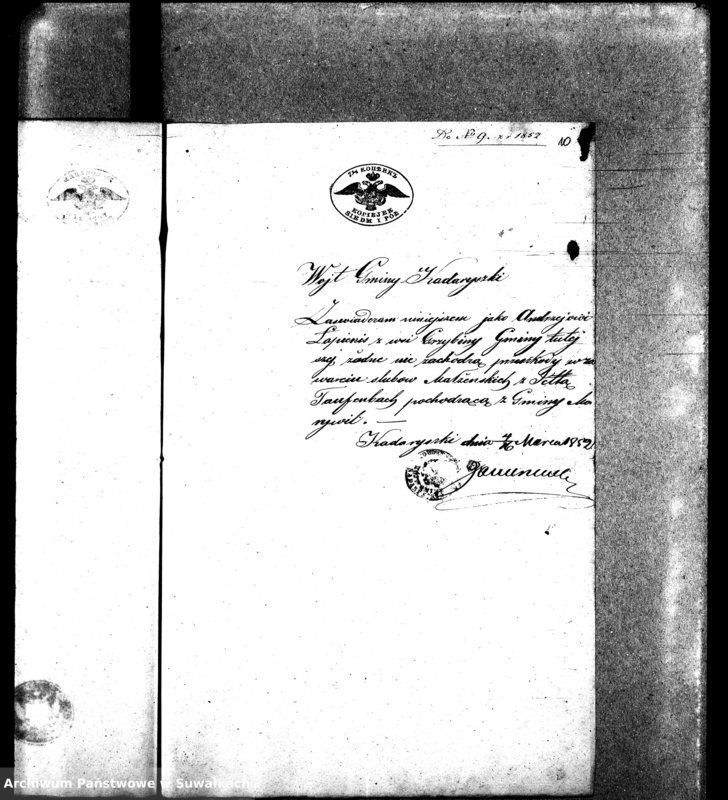 Do No 9. z r 1852
10
7½ КОПѢЕКЪ
KOPIEJEK
SIEDM I PÓŁ
Wójt Gminy Kadaryszki
Zaświadczam niniejszem jako Andrzejowi
Łapienis z wsi Grzybiny Gminy tutej
szej żadne nie zachodzą przeszkody w za
warciu ślubów Małżeńskich z
pochodzącą z Gminy
Kadaryszki dnia 4/16 Marca 1852
Archiwum Państwowe w Suwałkach